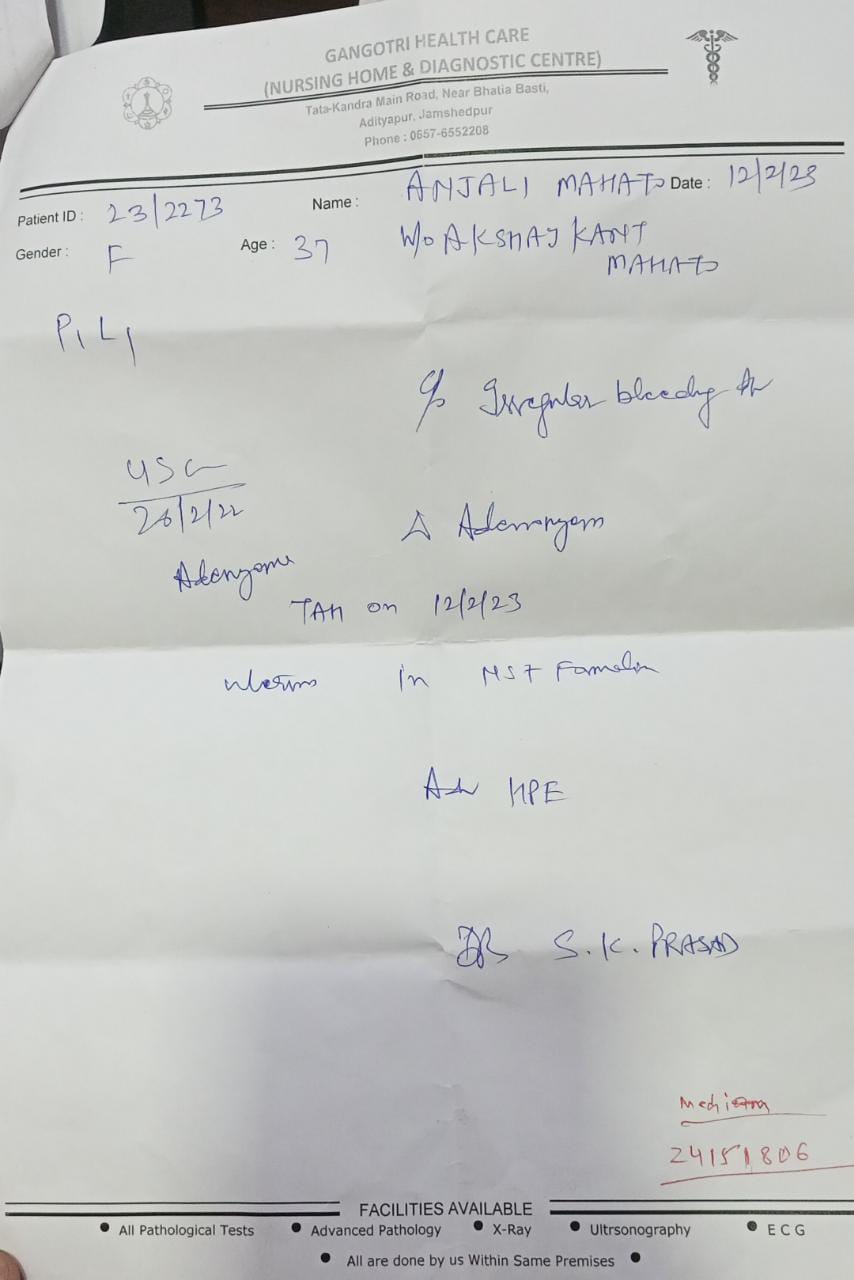 GANGOTRI HEALTH CARE
(NURSING HOME & DIAGNOSTIC CENTRE)
Tata-Kandra Main Road, Near Bhatia Basti,
Adityapur, Jamshedpur
Phone : 0657-6552208
Patient ID : 23/2273 Name : ANJALI MAHATO Date : 12/2/23
Gender : F Age : 37 W/o AKSHAY KANT
MAHATO
P1 L1
c/o Irregular bleeding
USG
26/2/22
Δ
TAH on 12/2/23
uterus in
Adv HPE
DR S.K. PRASAD
24151806
FACILITIES AVAILABLE
● All Pathological Tests ● Advanced Pathology ● X-Ray ● Ultrsonography ● E C G
● All are done by us Within Same Premises ●